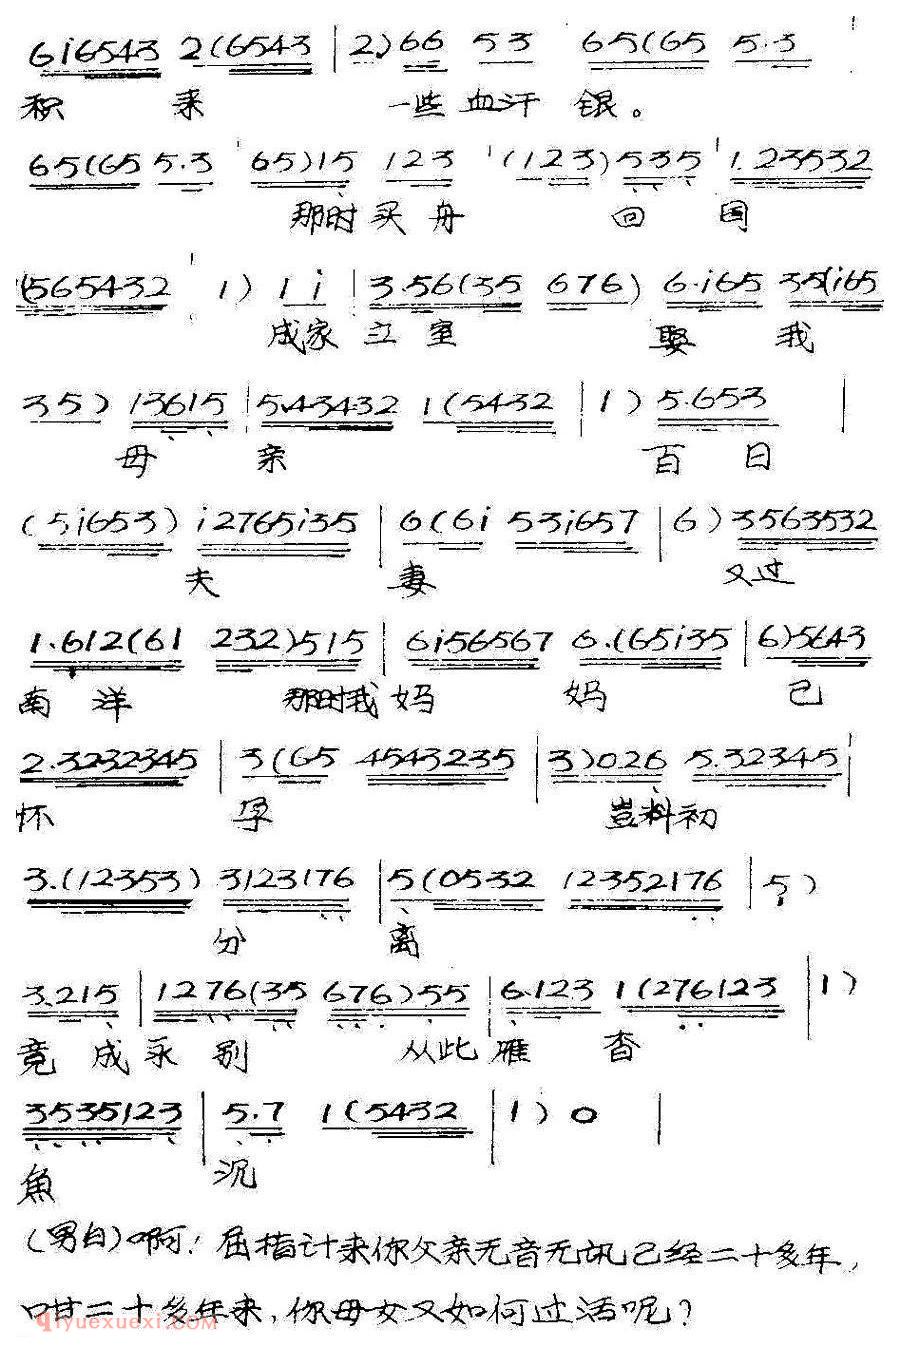 6i6543 2(6543 | 2) 66 53 65(65 5.3
积 来 一些 血汗 银。
65(65 5.3 65)15 123 (123) 535 1.23532
那时 买 舟 回 国
(565432 1) 1 i | 3.56(35 676) 6.i65 35(i65
成家 立 室 娶 我
35) 13615 | 5.43432 1(5432 | 1) 5.653 |
母 亲 百 日
(5i653) i2765i35 | 6(6i 53i657 | 6) 3563532
夫 妻 又过
1.612(61 232)515 | 6i56567 6.(65i35 | 6)5643
南 洋 那时我 妈 妈 已
2.3232345 | 3(65 4543235 | 3)026 5.32345 |
怀 孕 豈料初
3.(12353) 3123176 | 5(0532 12352176 | 5)
分 离
3.215 | 1276(35 676)55 | 6.123 1(276123 | 1)
竟 成 永 别 从此 雁 杳
3535123 | 5.7 1(5432 | 1) 0 |
魚 沉
(男白)啊!屈指计来你父亲无音无讯已经二十多年,
咁二十多年来,你母女又如何过活呢?
qiyuexuexi.com